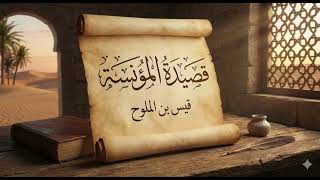 قصيدة المؤنسة
قيس بن الملوح